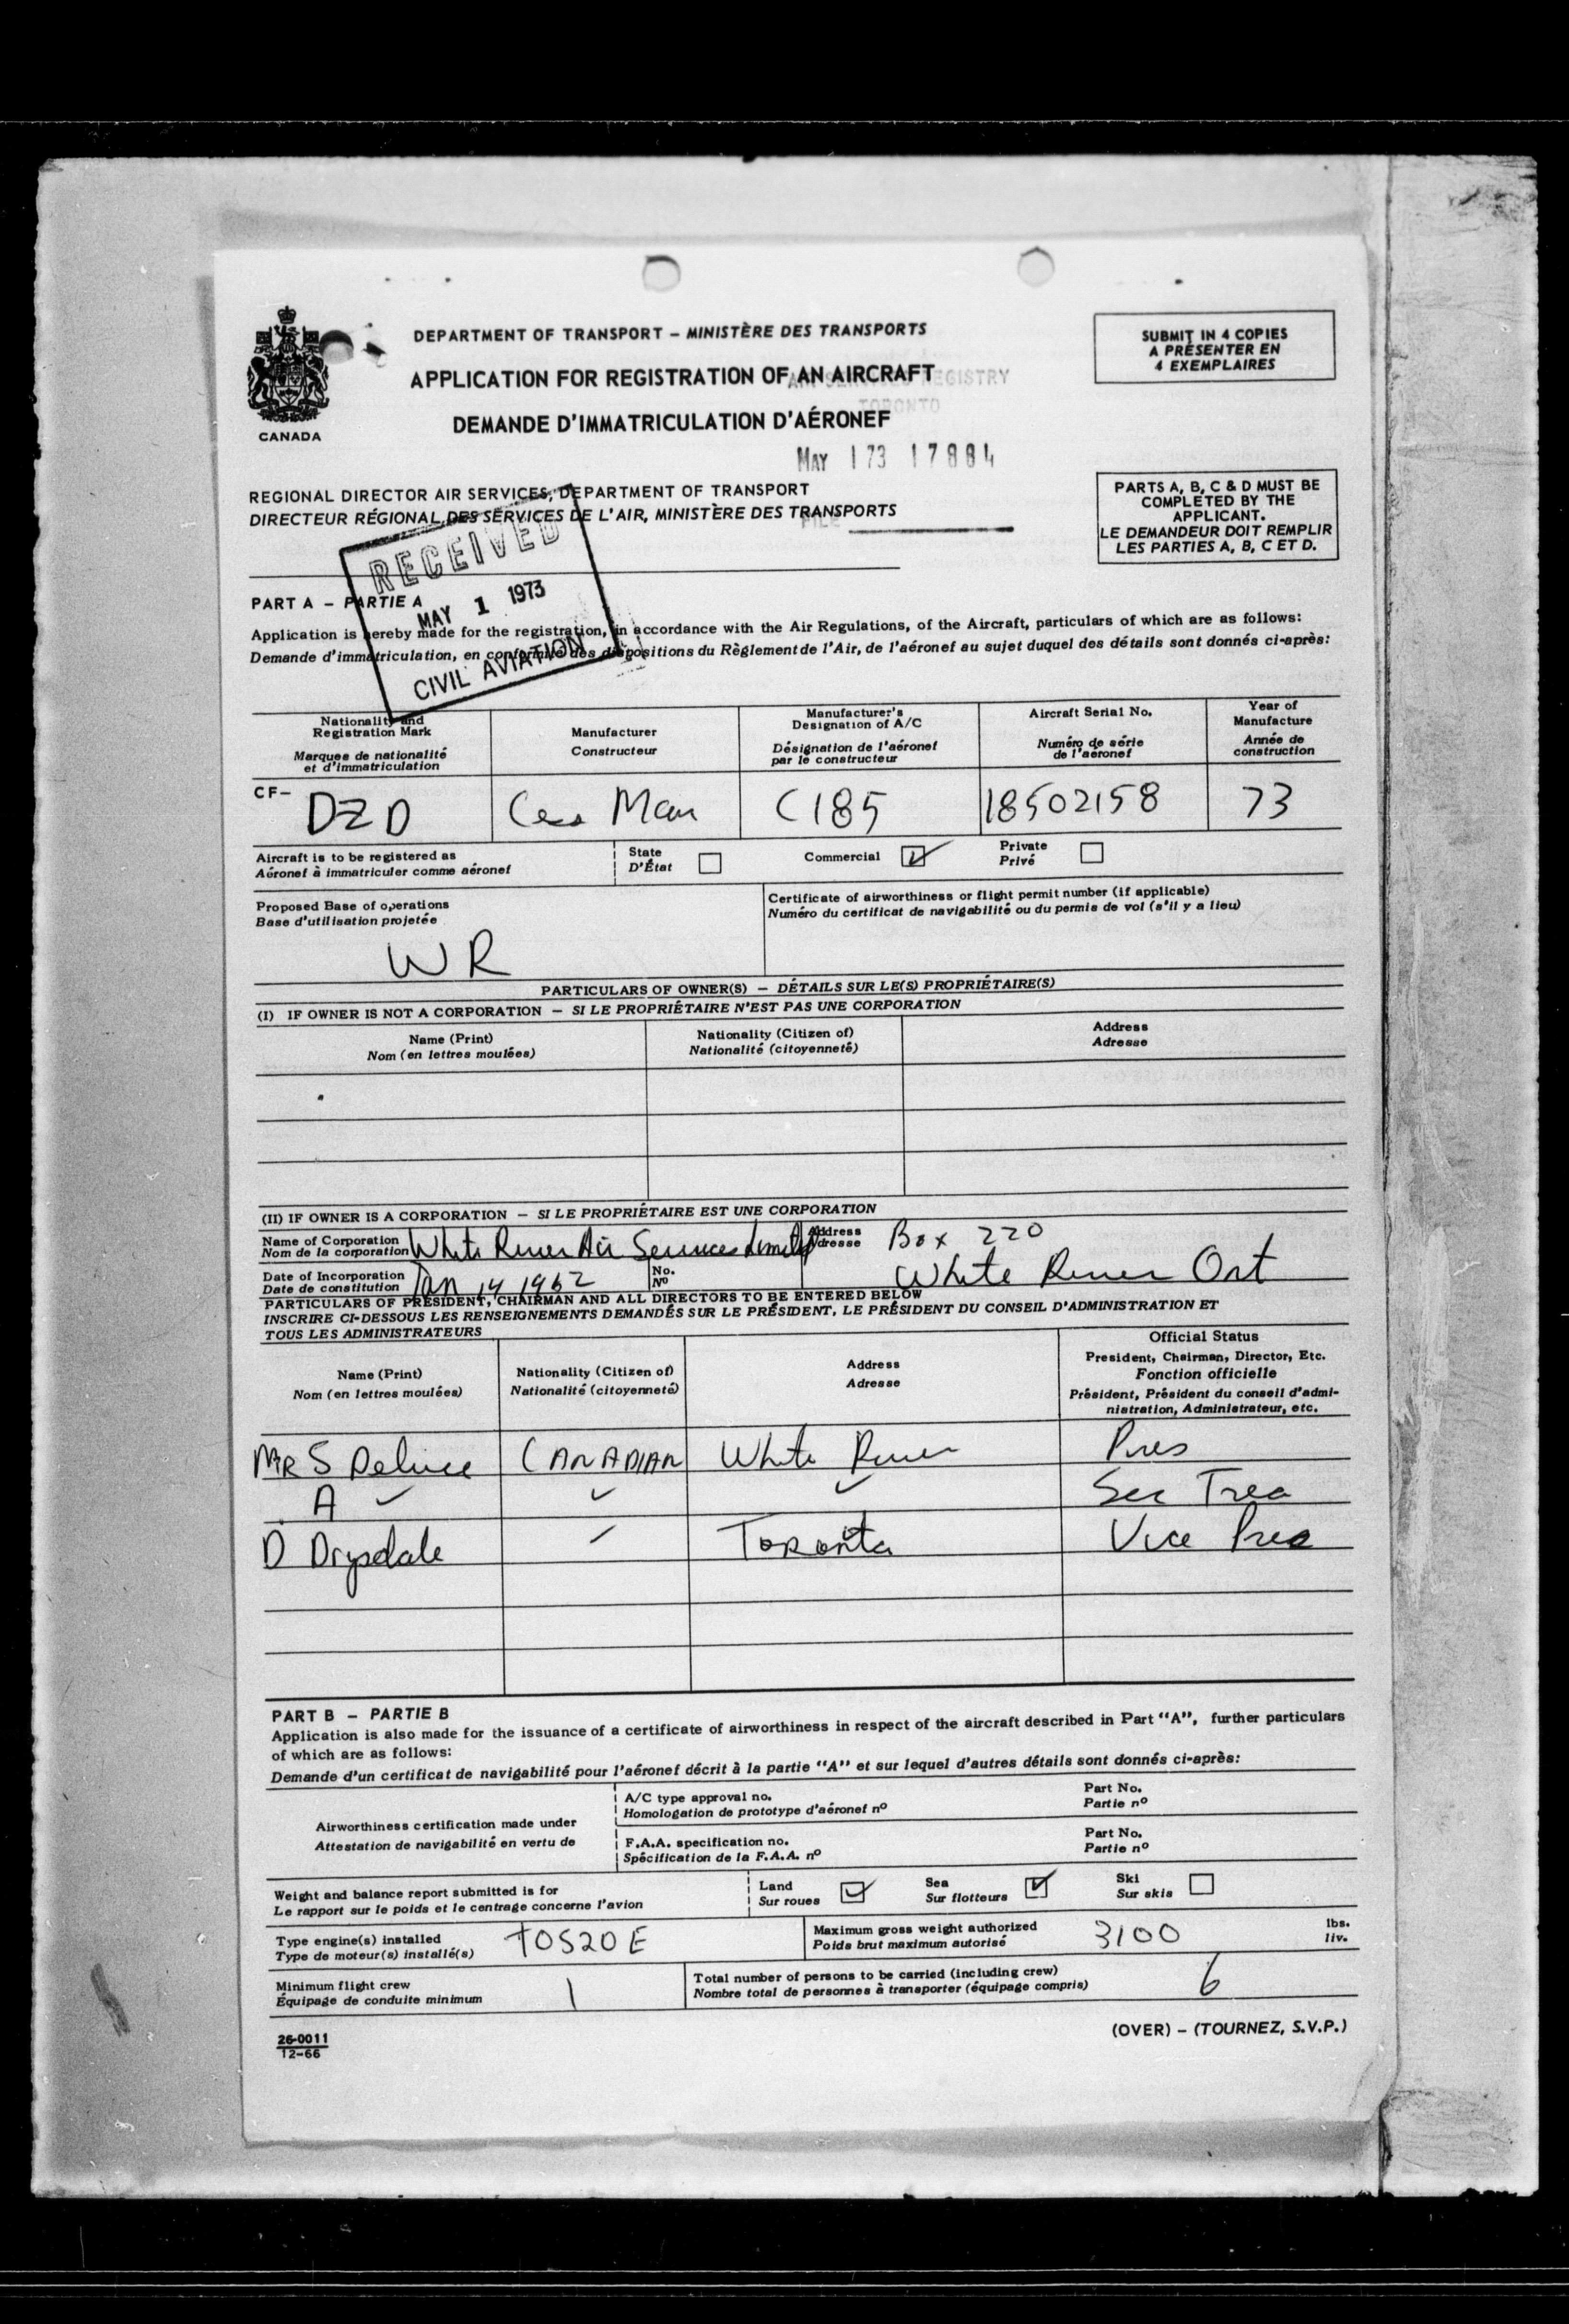 DEPARTMENT OF TRANSPORT – MINISTÈRE DES TRANSPORTS
SUBMIT IN 4 COPIES
A PRÉSENTER EN
4 EXEMPLAIRES
APPLICATION FOR REGISTRATION OF AN AIRCRAFT
REGISTRY
TORONTO
DEMANDE D'IMMATRICULATION D'AÉRONEF
CANADA
MAY 1 73 17884
REGIONAL DIRECTOR AIR SERVICES, DEPARTMENT OF TRANSPORT
DIRECTEUR RÉGIONAL DES SERVICES DE L'AIR, MINISTÈRE DES TRANSPORTS
FILE
PARTS A, B, C & D MUST BE
COMPLETED BY THE
APPLICANT.
LE DEMANDEUR DOIT REMPLIR
LES PARTIES A, B, C ET D.
RECEIVED
MAY 1 1973
CIVIL AVIATION
PART A – PARTIE A
Application is hereby made for the registration, in accordance with the Air Regulations, of the Aircraft, particulars of which are as follows:
Demande d'immatriculation, en conformité des dispositions du Règlement de l'Air, de l'aéronef au sujet duquel des détails sont donnés ci-après:
Nationality and
Registration Mark
Marques de nationalité
et d'immatriculation
Manufacturer
Constructeur
Manufacturer's
Designation of A/C
Désignation de l'aéronef
par le constructeur
Aircraft Serial No.
Numéro de série
de l'aéronef
Year of
Manufacture
Année de
construction
CF– DZD
C185
18502158
73
Aircraft is to be registered as
Aéronef à immatriculer comme aéronef
State
D'État
Commercial
Private
Privé
Proposed Base of operations
Base d'utilisation projetée
WR
Certificate of airworthiness or flight permit number (if applicable)
Numéro du certificat de navigabilité ou du permis de vol (s'il y a lieu)
PARTICULARS OF OWNER(S) – DÉTAILS SUR LE(S) PROPRIÉTAIRE(S)
(I) IF OWNER IS NOT A CORPORATION – SI LE PROPRIÉTAIRE N'EST PAS UNE CORPORATION
Name (Print)
Nom (en lettres moulées)
Nationality (Citizen of)
Nationalité (citoyenneté)
Address
Adresse
(II) IF OWNER IS A CORPORATION – SI LE PROPRIÉTAIRE EST UNE CORPORATION
Name of Corporation
Nom de la corporation
White River Air Services Limited
Address
Adresse
Box 220
White River Ont
Date of Incorporation
Date de constitution
Jan 14 1962
No.
Nº
PARTICULARS OF PRESIDENT, CHAIRMAN AND ALL DIRECTORS TO BE ENTERED BELOW
INSCRIRE CI-DESSOUS LES RENSEIGNEMENTS DEMANDÉS SUR LE PRÉSIDENT, LE PRÉSIDENT DU CONSEIL D'ADMINISTRATION ET
TOUS LES ADMINISTRATEURS
Name (Print)
Nom (en lettres moulées)
Nationality (Citizen of)
Nationalité (citoyenneté)
Address
Adresse
Official Status
President, Chairman, Director, Etc.
Fonction officielle
Président, Président du conseil d'admi-
nistration, Administrateur, etc.
MR S Deluce CANADIAN White River Pres
A Sec Trea
D Drysdale Toronto Vice Pres
PART B – PARTIE B
Application is also made for the issuance of a certificate of airworthiness in respect of the aircraft described in Part "A", further particulars
of which are as follows:
Demande d'un certificat de navigabilité pour l'aéronef décrit à la partie "A" et sur lequel d'autres détails sont donnés ci-après:
Airworthiness certification made under
Attestation de navigabilité en vertu de
A/C type approval no.
Homologation de prototype d'aéronef nº
Part No.
Partie nº
F.A.A. specification no.
Spécification de la F.A.A. nº
Part No.
Partie nº
Weight and balance report submitted is for
Le rapport sur le poids et le centrage concerne l'avion
Land
Sur roues
Sea
Sur flotteurs
Ski
Sur skis
Type engine(s) installed
Type de moteur(s) installé(s)
TO520E
Maximum gross weight authorized
Poids brut maximum autorisé
3100
lbs.
liv.
Minimum flight crew
Équipage de conduite minimum
1
Total number of persons to be carried (including crew)
Nombre total de personnes à transporter (équipage compris)
6
26-0011
12-66
(OVER) – (TOURNEZ, S.V.P.)